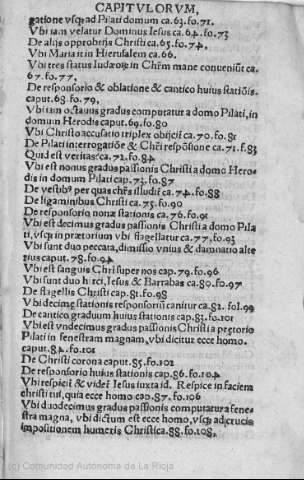 CAPITVLORVM,
gatione vsq; ad Pilati domum ca.63.fo.71.
Vbi iam velatur Dominus Iesus ca.64.fo.73
De alijs opprobrijs Christi ca.65.fo.74.
Vbi Maria it in Hierusalem ca.66.
Vbi tres status Iudæoꝝ in Chr̄m mane conveniūt ca.
67.fo.77.
De responsorio & oblatione & cantico huius statiōis.
caput.68.fo.79.
Vbi iam octauus gradus computatur a domo Pilati, in
domum Herodis caput.69.fo.80
Vbi Christo accusatio triplex obijcit ca.70.fo.81
De Pilati interrogatiōe & Chr̄i respōsione ca.71.f.83
Quid est veritas? ca.72.fo.84
Vbi est nonus gradus passionis Christi a domo Hero-
dis in domum Pilati cap.73.fo.87
De vestibꝰ per quas chr̄s illudit̄ ca.74.fo.88
De ligaminibus Christi ca.75.fo.90
De responsorio nonæ stationis ca.76.fo.91
Vbi est decimus gradus passionis Christi a domo Pila
ti, vsq; in prætorium vbi flagellatur ca.77.fo.93
Vbi sunt duo peccata, dimissio vnius & damnatio alte
rius caput.78.fo.94
Vbi est sanguis Chr̄i super nos cap.79.fo.96
Vbi sunt duo hirci, Iesus & Barrabas ca.80.fo.97
De flagellis Christi cap.81.fo.98
Vbi decimæ stationis responsoriū canitur ca.82.fol.99
De cantico graduum huius stationis cap.83.fo.101
Vbi est vndecimus gradus passionis Christi a pretorio
Pilati in fenestram magnam, vbi dicitur ecce homo.
caput.84.fo.101
De Christi corona caput.85.fo.102
De responsorio huius stationis cap.86.fo.104
Vbi respicit & videt̄ Iesus iuxta id. Respice in faciem
christi tui, quia ecce homo cap.87.fo.106
Vbi duodecimus gradus passionis computatur a fene-
stra magna, vbi dictum est ecce homo, vsq; ad crucis
impositionem humeris Christi ca.88.fo.108.
(c) Comunidad Autónoma de La Rioja